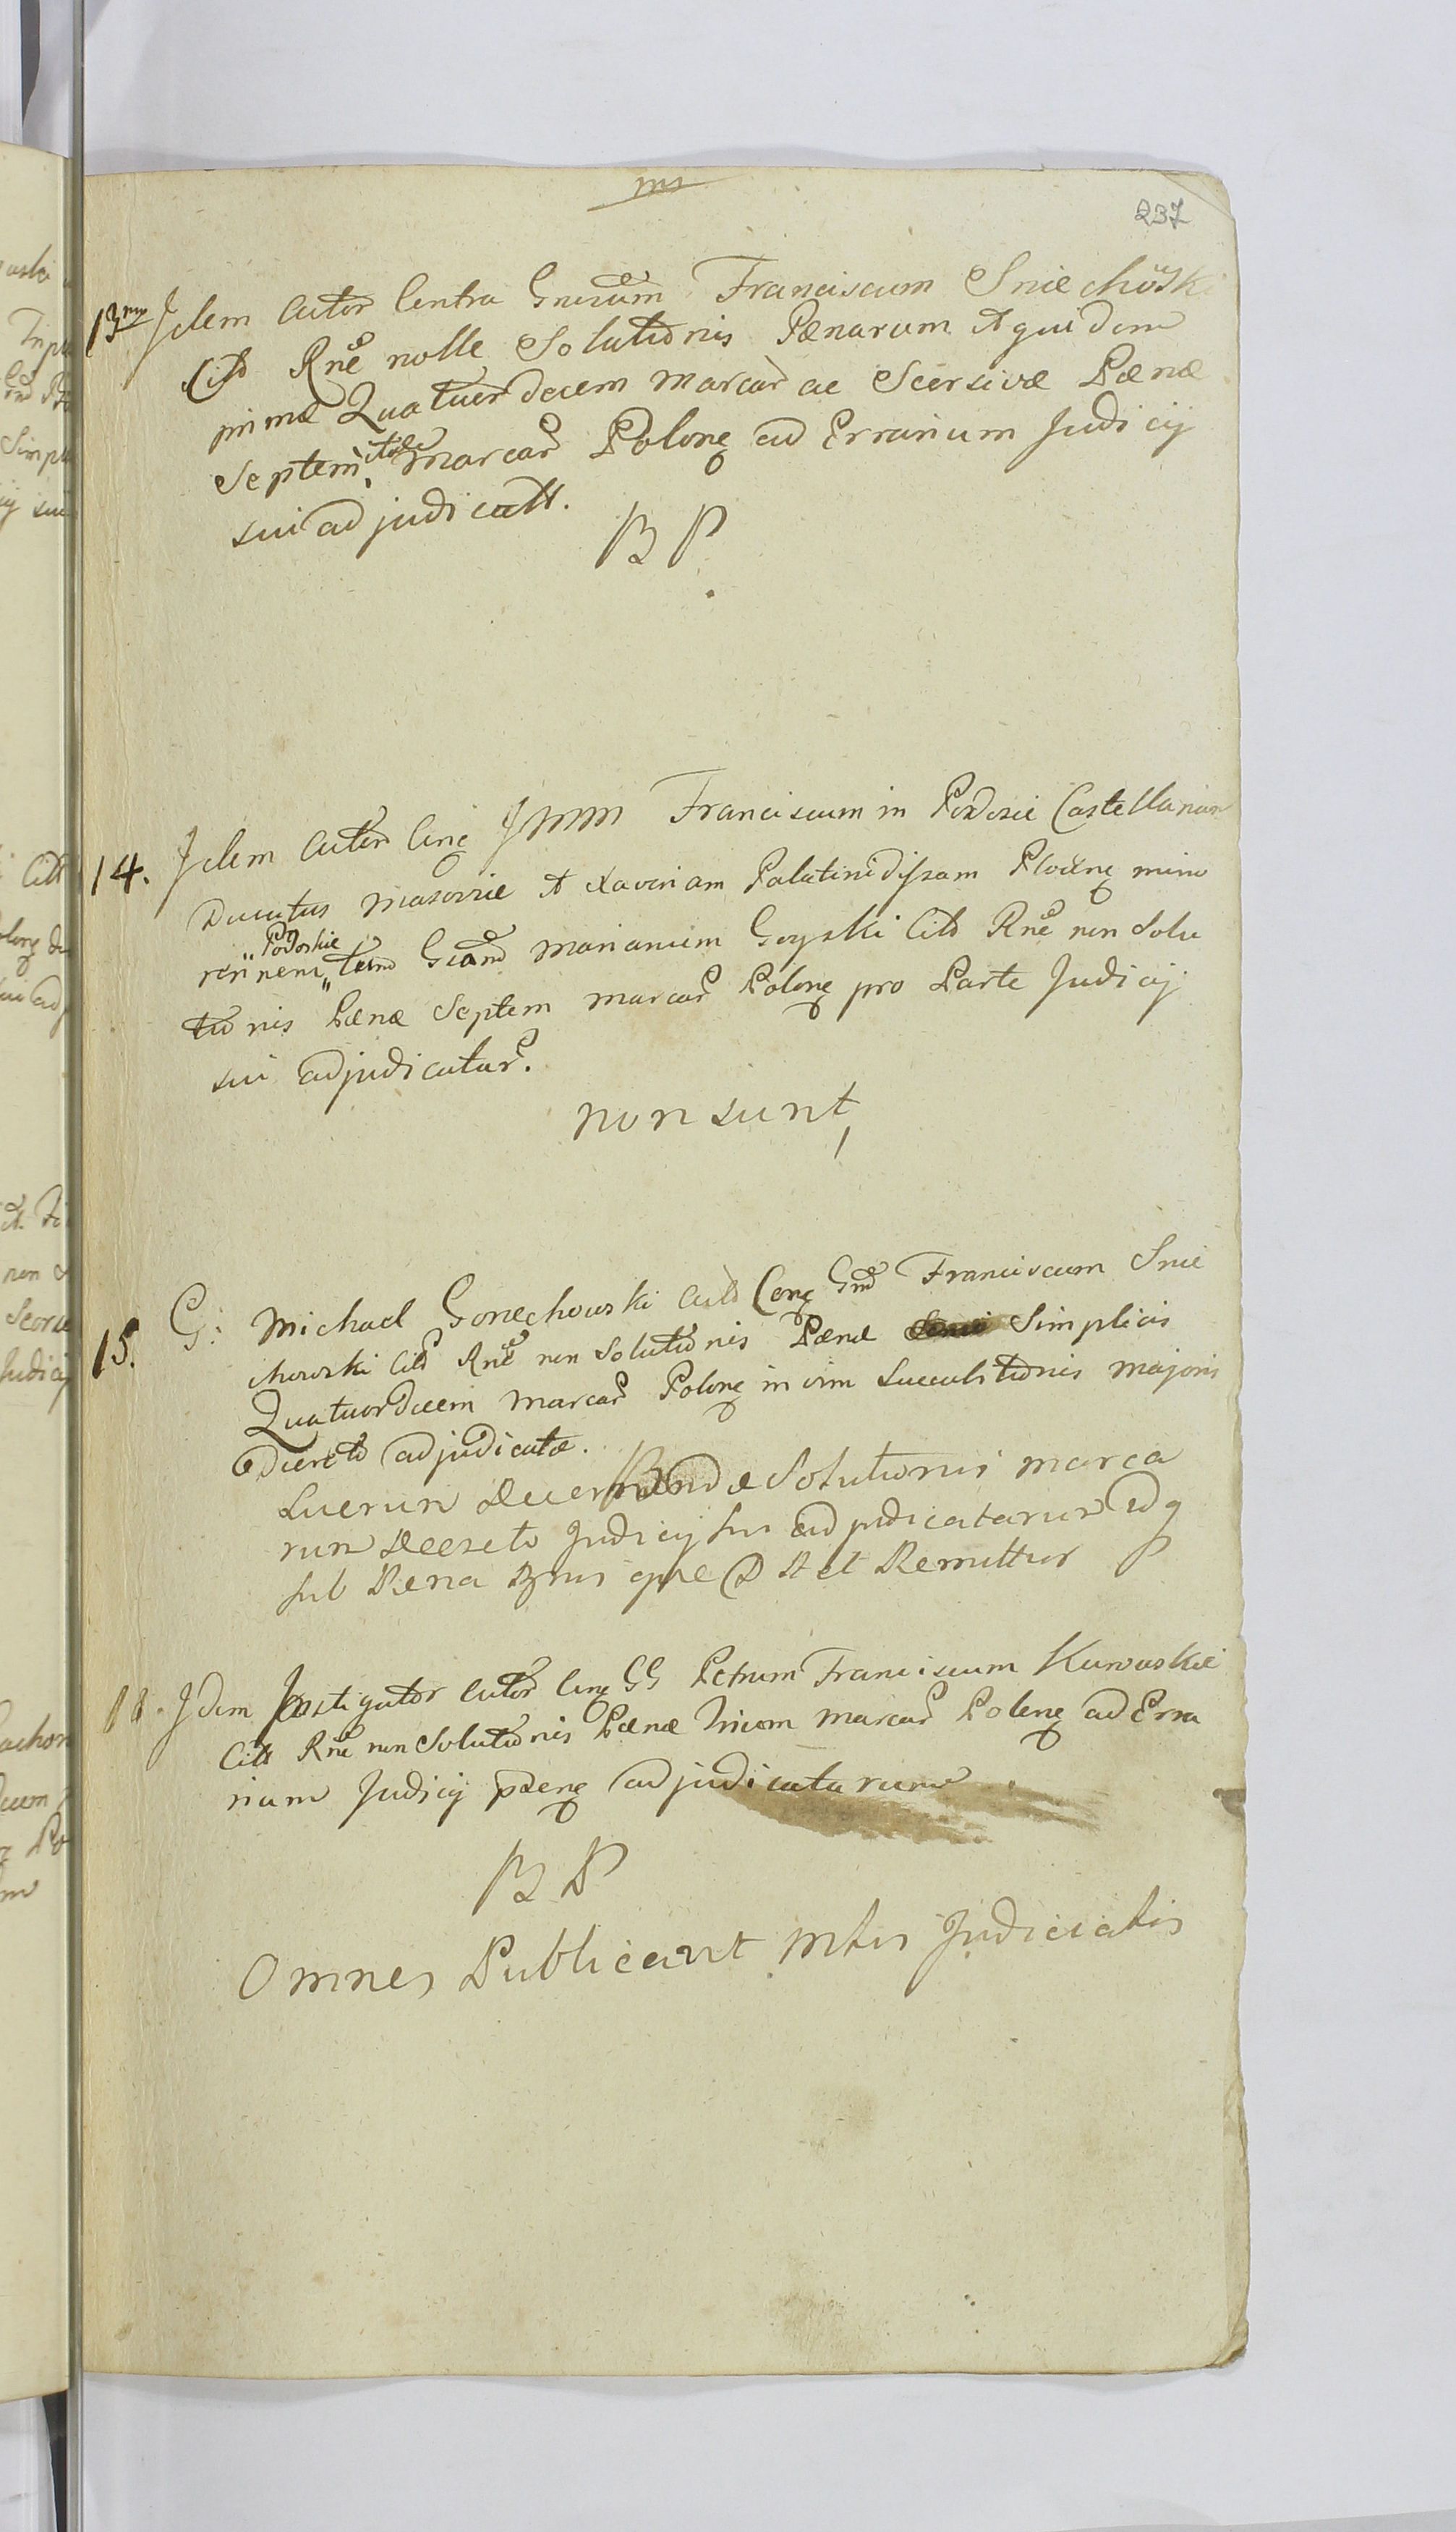 ms
237
13 Idem Cutor Contra Gnerum Franciscum Sniechoski
Citt Rne nolle Solutionis Pænarum A quidem
primæ Quatuordecem marcar ac Seorsivæ Pænæ
Septem marcar Polone ad Errarium Judicij
sui adjudicatt.
BP
14. Idem Cutor Cone Franciscum in Podosie Castellanum
Ducatus Masoviæ A Xaveriam Palatinidissam Plocene mino
Podoskie
rennem Marianum Goyski Citt Rne non Solu
tionis Pænæ Septem marcar Polone pro Parte Judicij
sui adjudicatar.
non sunt
15. G: Michael Gorzechowski Cone Gnd Franciscum Snie
chowski Citt Rne non Solutionis Pænæ Simplicis
Quatuordecem marcar Polone in vim Succubitionis majoris
Decreto adjudicatæ.
Solutionis marca
rum Decreto Judicij sui adjudicatarum idq
sub Pena et Remittur
Idem Instigator Cutor Cone GG Petrum Franciscum Kurowskie
Citt Rne non Solutionis Pænæ Trium marcar Polone ad Erra
rium Judicij adjudicatarum.
BP
Omnes Publicant Judicialis